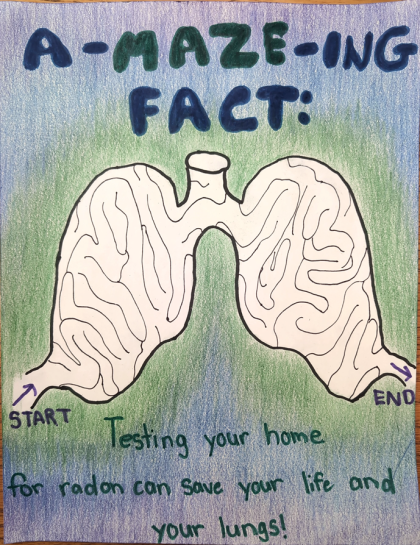 A-MAZE-ING
FACT:
START
END
Testing your home
for radon can save your life and
your lungs!